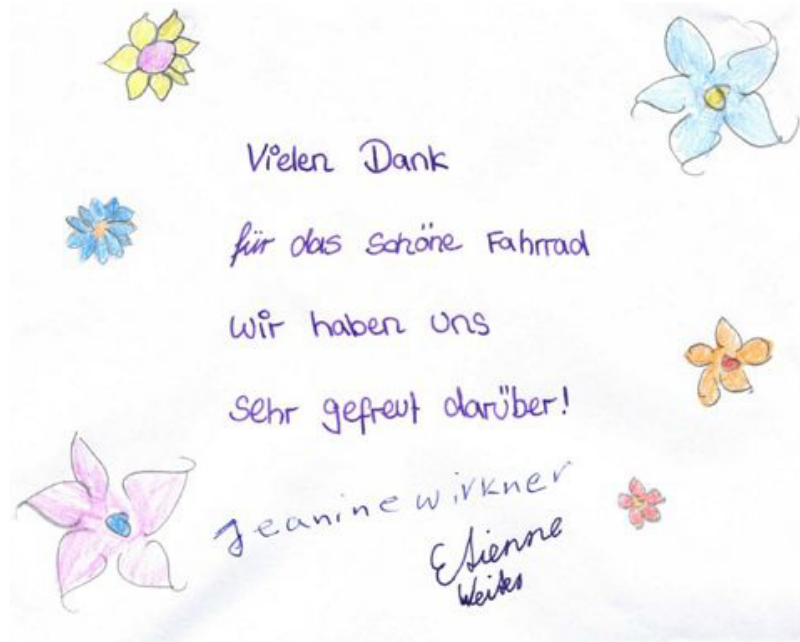 Vielen Dank
für das schöne Fahrrad
wir haben uns
sehr gefreut darüber!
Jeanine wirkner
Etienne